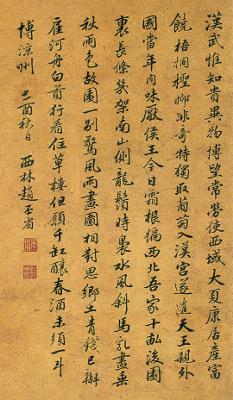 漢武惟知貴異物博望常勞使西域大夏康居產富
饒梧桐檉柳非奇特獨取葡萄入漢宮遂遣天王親外
國當年肉味厭侯王今日霜根徧西北吾家十畝後園
裏長條幾架南山側龍鬚時裊水風斜馬乳盡垂
秋雨色故園一別驚風雨畫圖相對思鄉土青錢已辦
雇河舟白首行看住草樓但願千缸釀春酒未須一斗
博涼州 己酉秋日 西林趙丕省